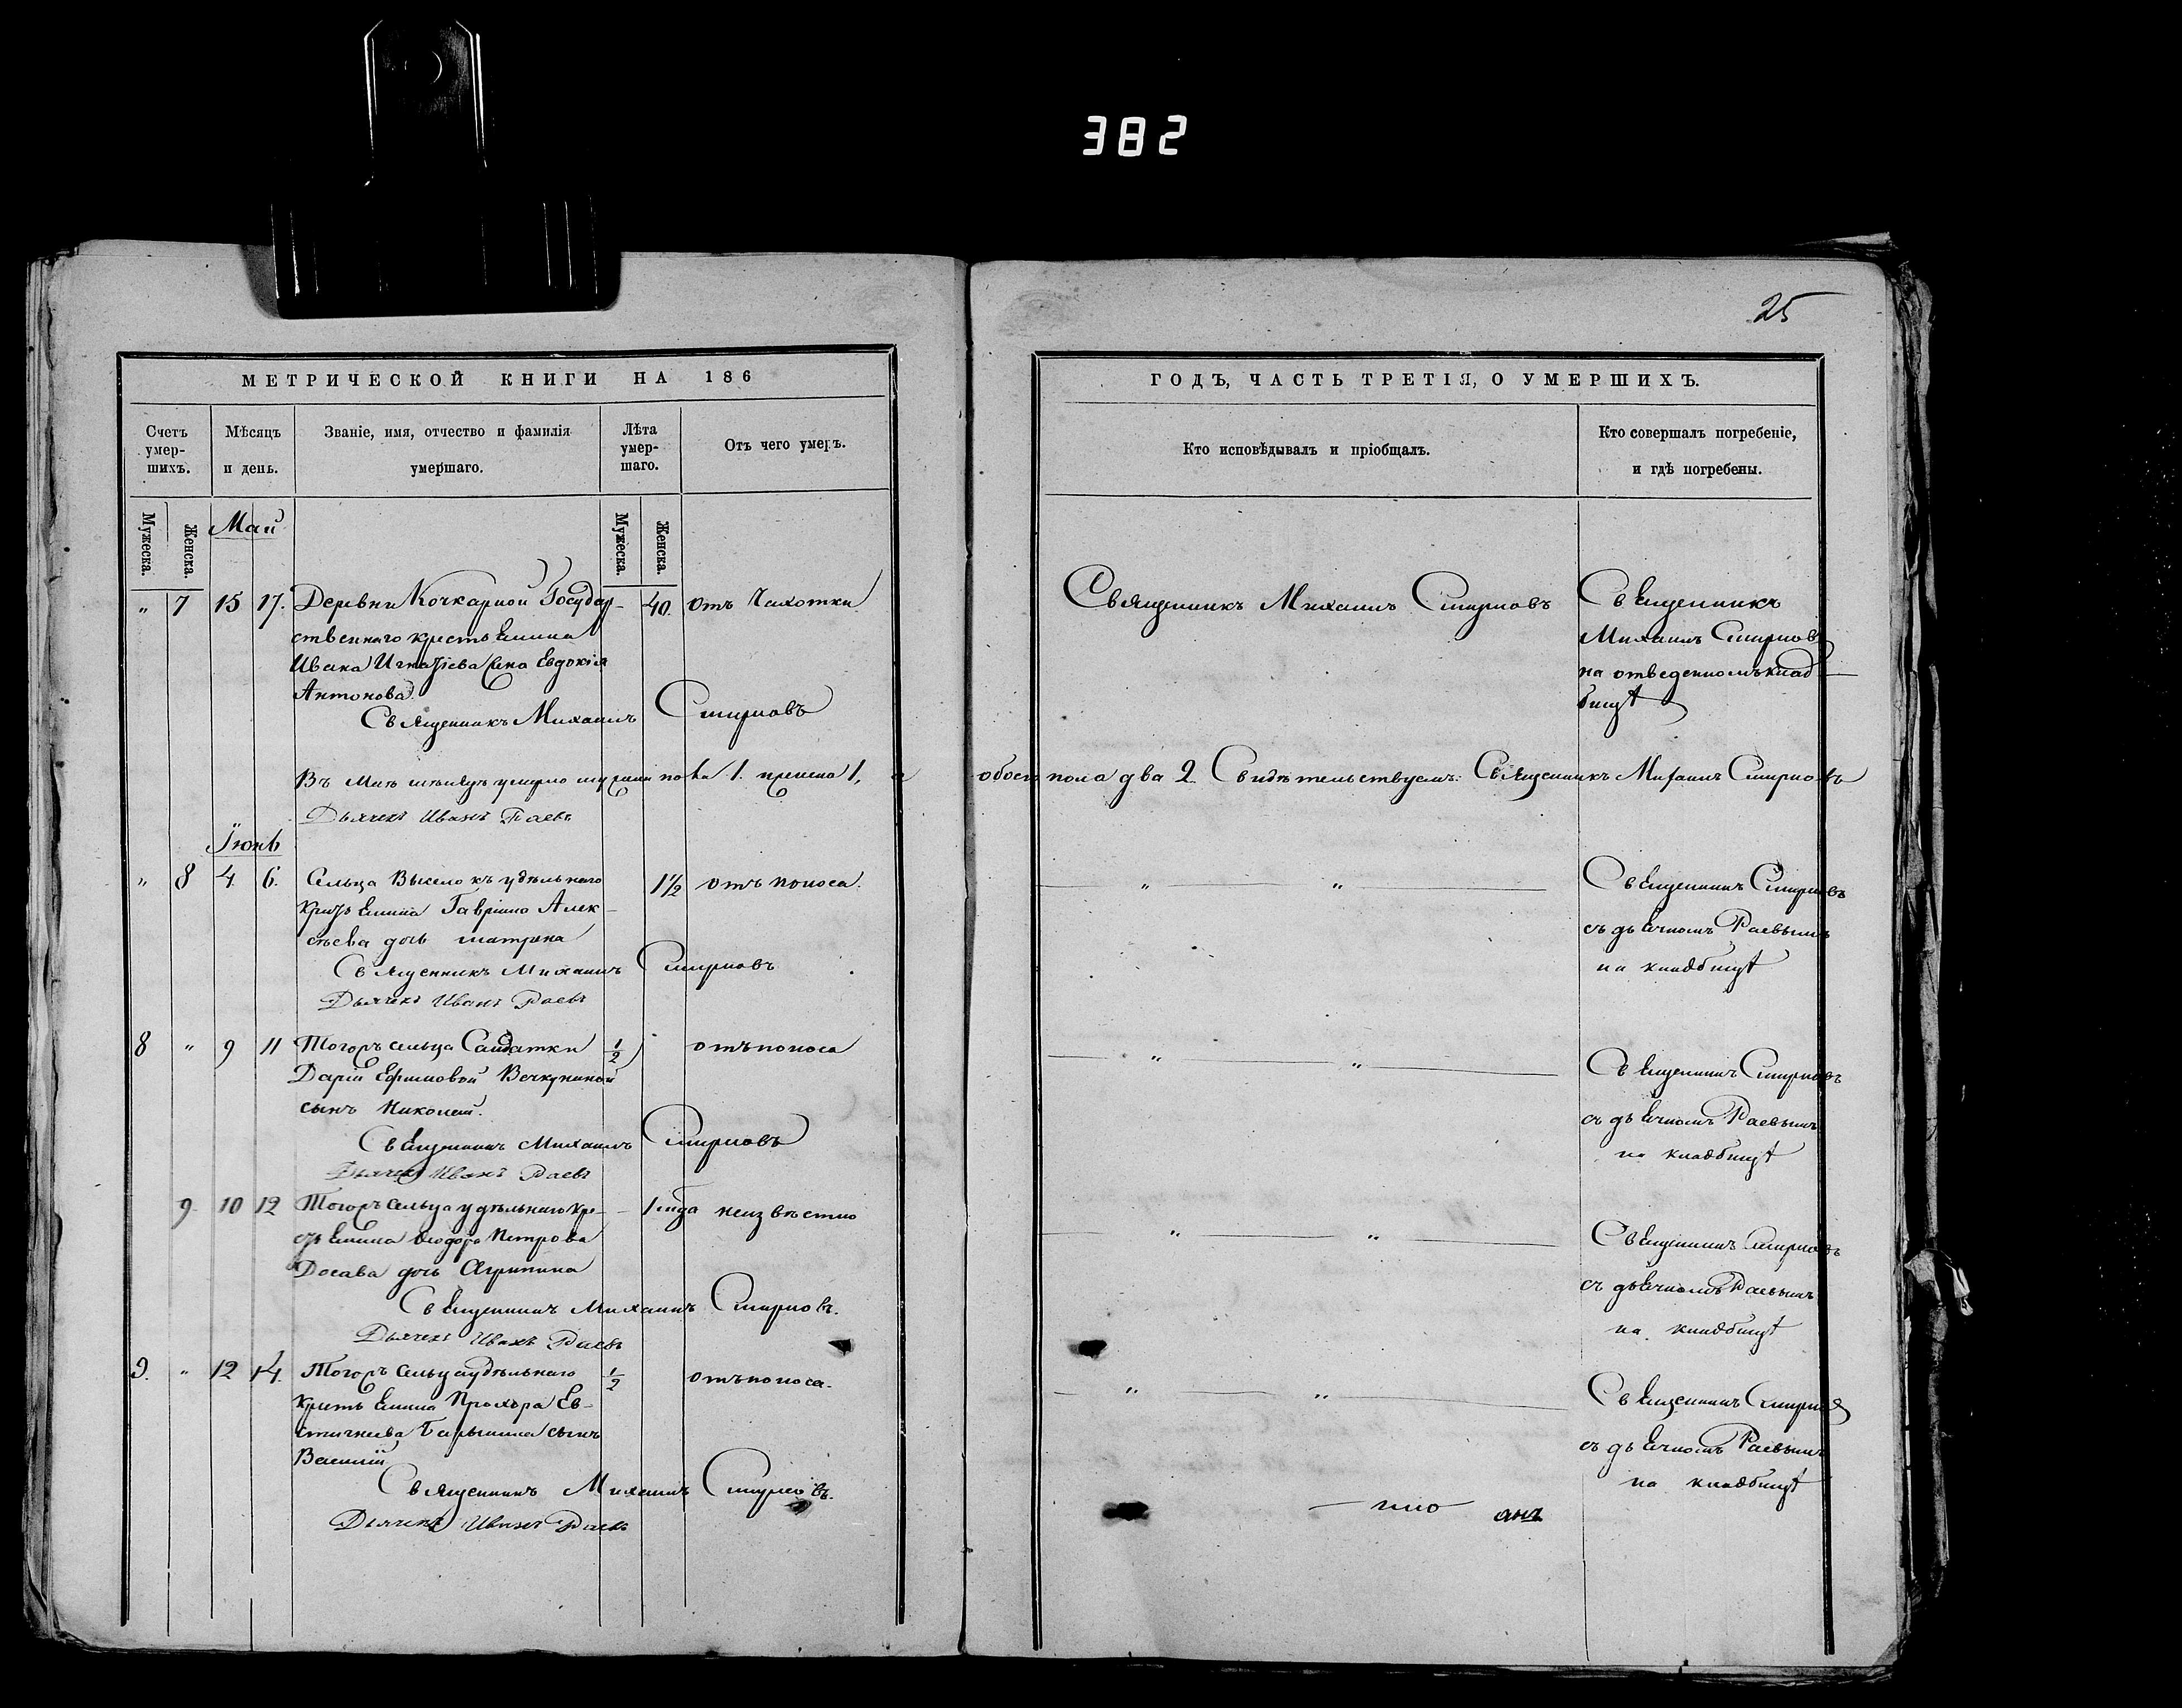 382
25
МЕТРИЧЕСКОЙ КНИГИ НА 186
Счетъ умер-шихъ.
Мѣсяцъ и день.
Званіе, имя, отчество и фамилія умершаго.
Лѣта умер-шаго.
Отъ чего умеръ.
Мужеска.
Женска.
Мужеска.
Женска.
Май
" 7 15 17. Деревни Кочкарной Государ- 40. отъ Чахотки
ственнаго крестьянина
Ивана Игнатіева жена Евдокія
Антонова.
Священникъ Михаилъ Смирновъ
Въ Маѣ мѣсяцѣ умерло мужеска пола 1. женска 1, а
Дьячекъ Иванъ Раевъ
Іюнь
" 8 4 6. Сельца Выселокъ удѣльнаго 1½ отъ поноса.
крестьянина Гавріила Алек-
сѣева дочь Матрона
Священникъ Михаилъ Смирновъ
Дьячекъ Иванъ Раевъ
8 " 9 11 Тогожъ сельца Салдатки ½ отъ поноса
Дарьи Ефимовой
сынъ Николай.
Священникъ Михаилъ Смирновъ
Дьячекъ Иванъ Раевъ
9. 10 12 Тогожъ сельца удѣльнаго кре- 1 года неизвѣстно
стьянина Ѳеодора Петрова
дочь Агрипина
Священникъ Михаилъ Смирновъ.
Дьячекъ Иванъ Раевъ
9. " 12 14. Тогожъ сельца удѣльнаго ½ отъ поноса.
крестьянина Прохора Ев-
стигнеева сынъ
Василій
Священникъ Михаилъ Смирновъ.
Дьячекъ Иванъ Раевъ
ГОДЪ, ЧАСТЬ ТРЕТІЯ, О УМЕРШИХЪ.
Кто исповѣдывалъ и пріобщалъ.
Кто совершалъ погребеніе, и гдѣ погребены.
Священникъ Михаилъ Смирновъ
Священникъ
Михаилъ Смирновъ
на отведенномъ клад-
бищѣ
обоего пола два 2 Свидѣтельствуемъ: Священникъ Михаилъ Смирновъ
" " Священникъ Смирновъ
съ дьячкомъ Раевымъ
на кладбищѣ
" " Священникъ Смирновъ
съ дьячкомъ Раевымъ
на кладбищѣ
" " Священникъ Смирновъ
съ дьячкомъ Раевымъ
на кладбищѣ
" " Священникъ Смирновъ
съ дьячкомъ Раевымъ
на кладбищѣ